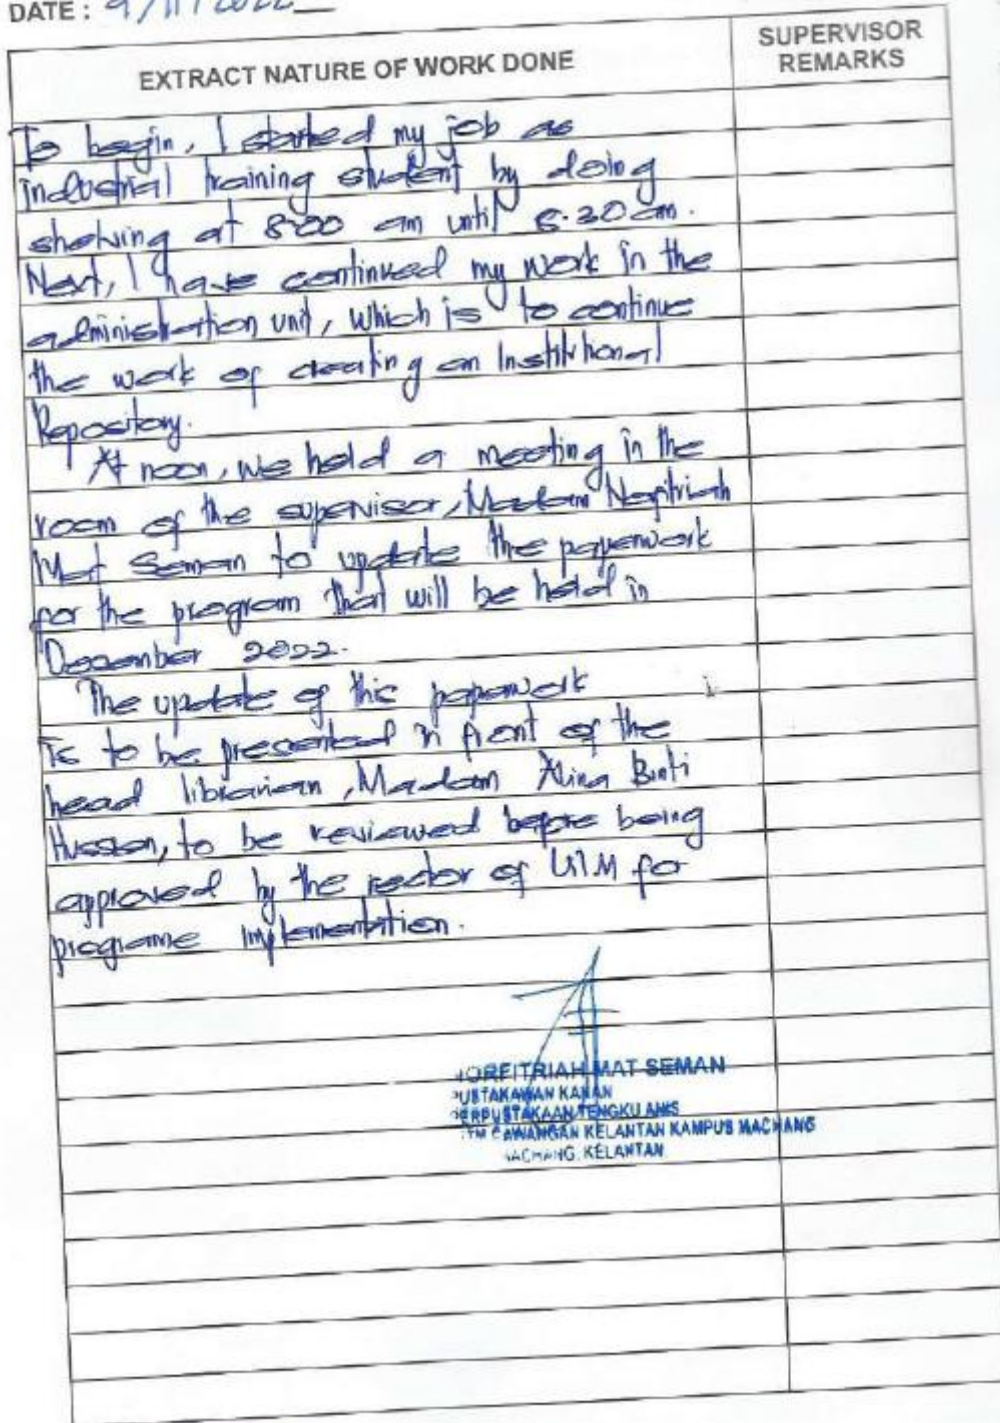 DATE : 9/11/2022
EXTRACT NATURE OF WORK DONE
SUPERVISOR
REMARKS
To begin, I started my job as
industrial training student by doing
shelving at 8.00 am until 8.30 am.
Next, I have continued my work in the
administration unit, which is to continue
the work of creating an Institutional
Repository.
At noon, we held a meeting in the
room of the supervisor, Madam Norfitriah
Mat Seman to update the paperwork
for the program that will be held in
December 2022.
The update of this paperwork
is to be presented in front of the
head librarian, Madam Alina Binti
Hussen, to be reviewed before being
approved by the rector of UiTM for
programe implementation.
NORFITRIAH MAT SEMAN
PUSTAKAWAN KANAN
PERPUSTAKAAN TENGKU ANIS
UiTM CAWANGAN KELANTAN KAMPUS MACHANG
MACHANG, KELANTAN